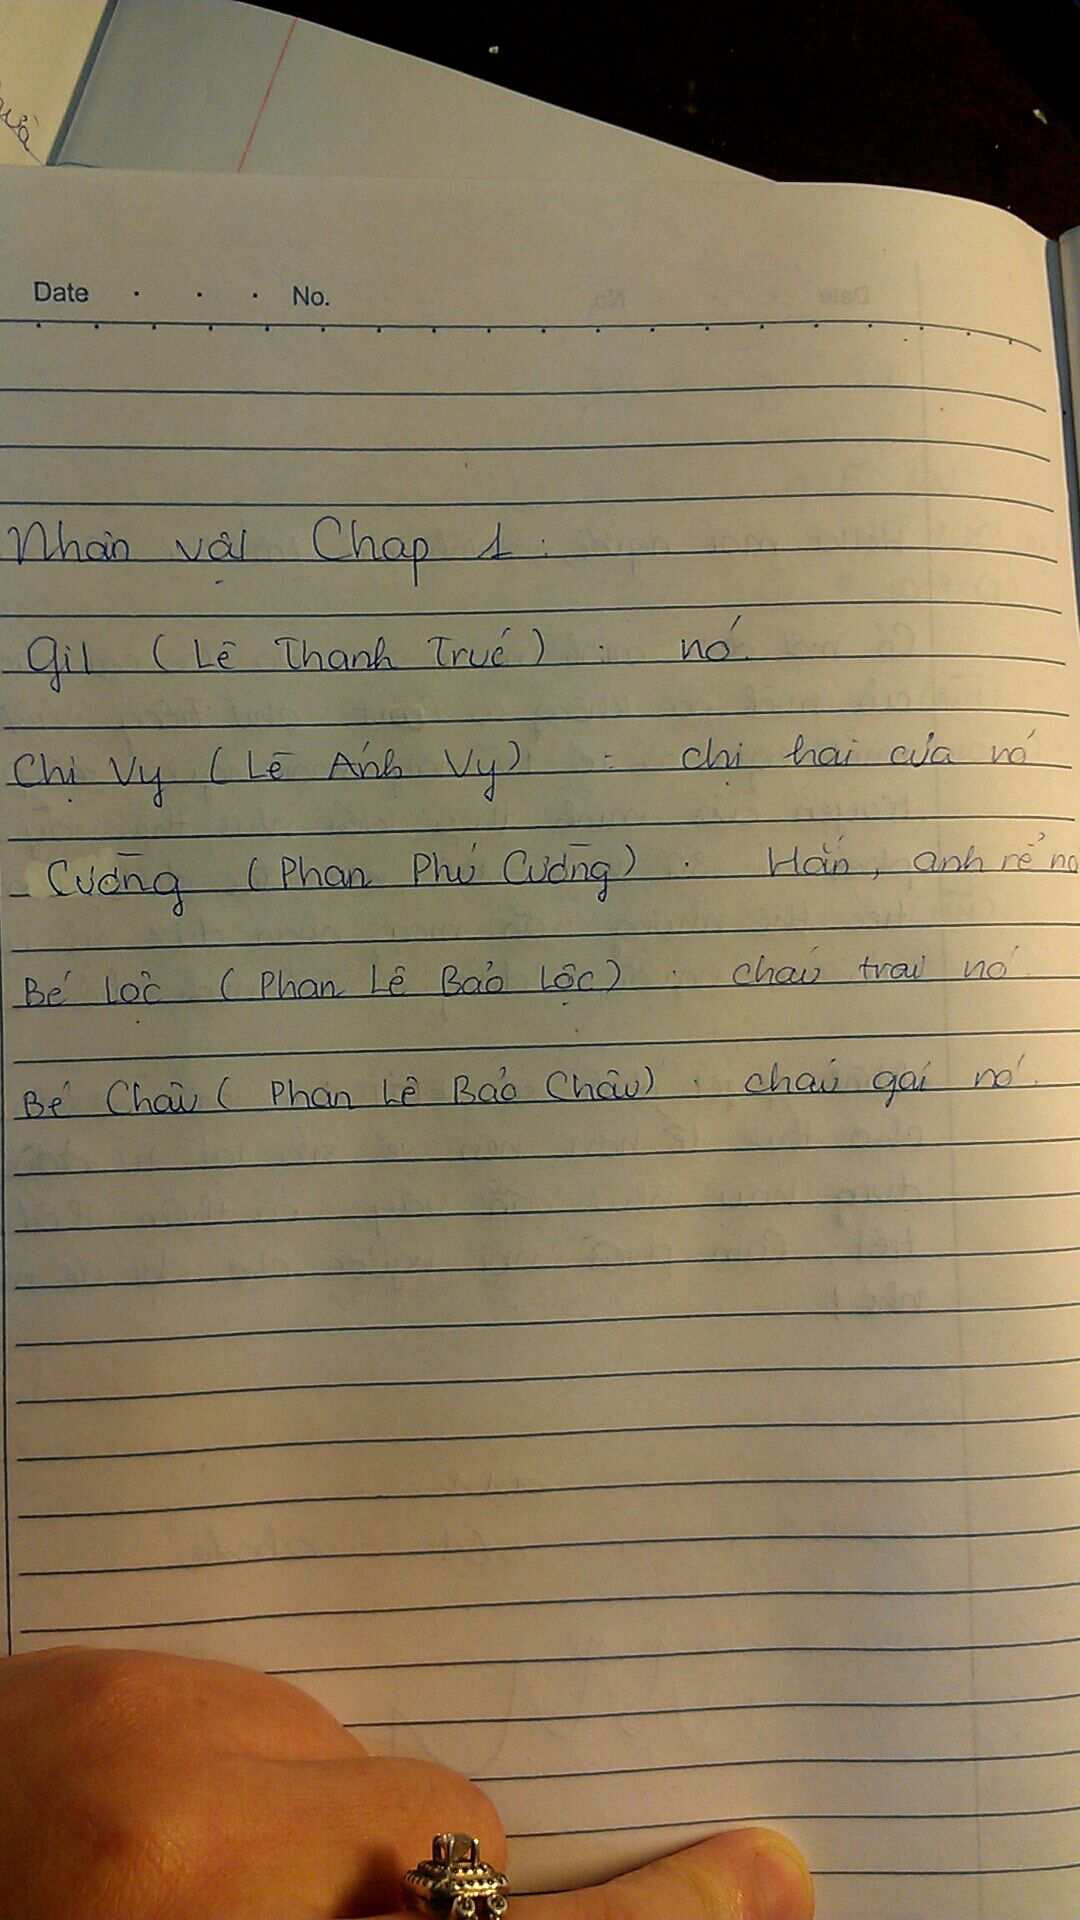 Date . . . No.
Nhân vật Chap 1 :
Gil ( Lê Thanh Trúc ) : nó.
Chị Vy ( Lê Ánh Vy ) : chị hai của nó
Cường ( Phan Phú Cường ) : Hắn, anh rể nó
Bé Lộc ( Phan Lê Bảo Lộc ) : cháu trai nó
Bé Châu ( Phan Lê Bảo Châu ) : cháu gái nó.